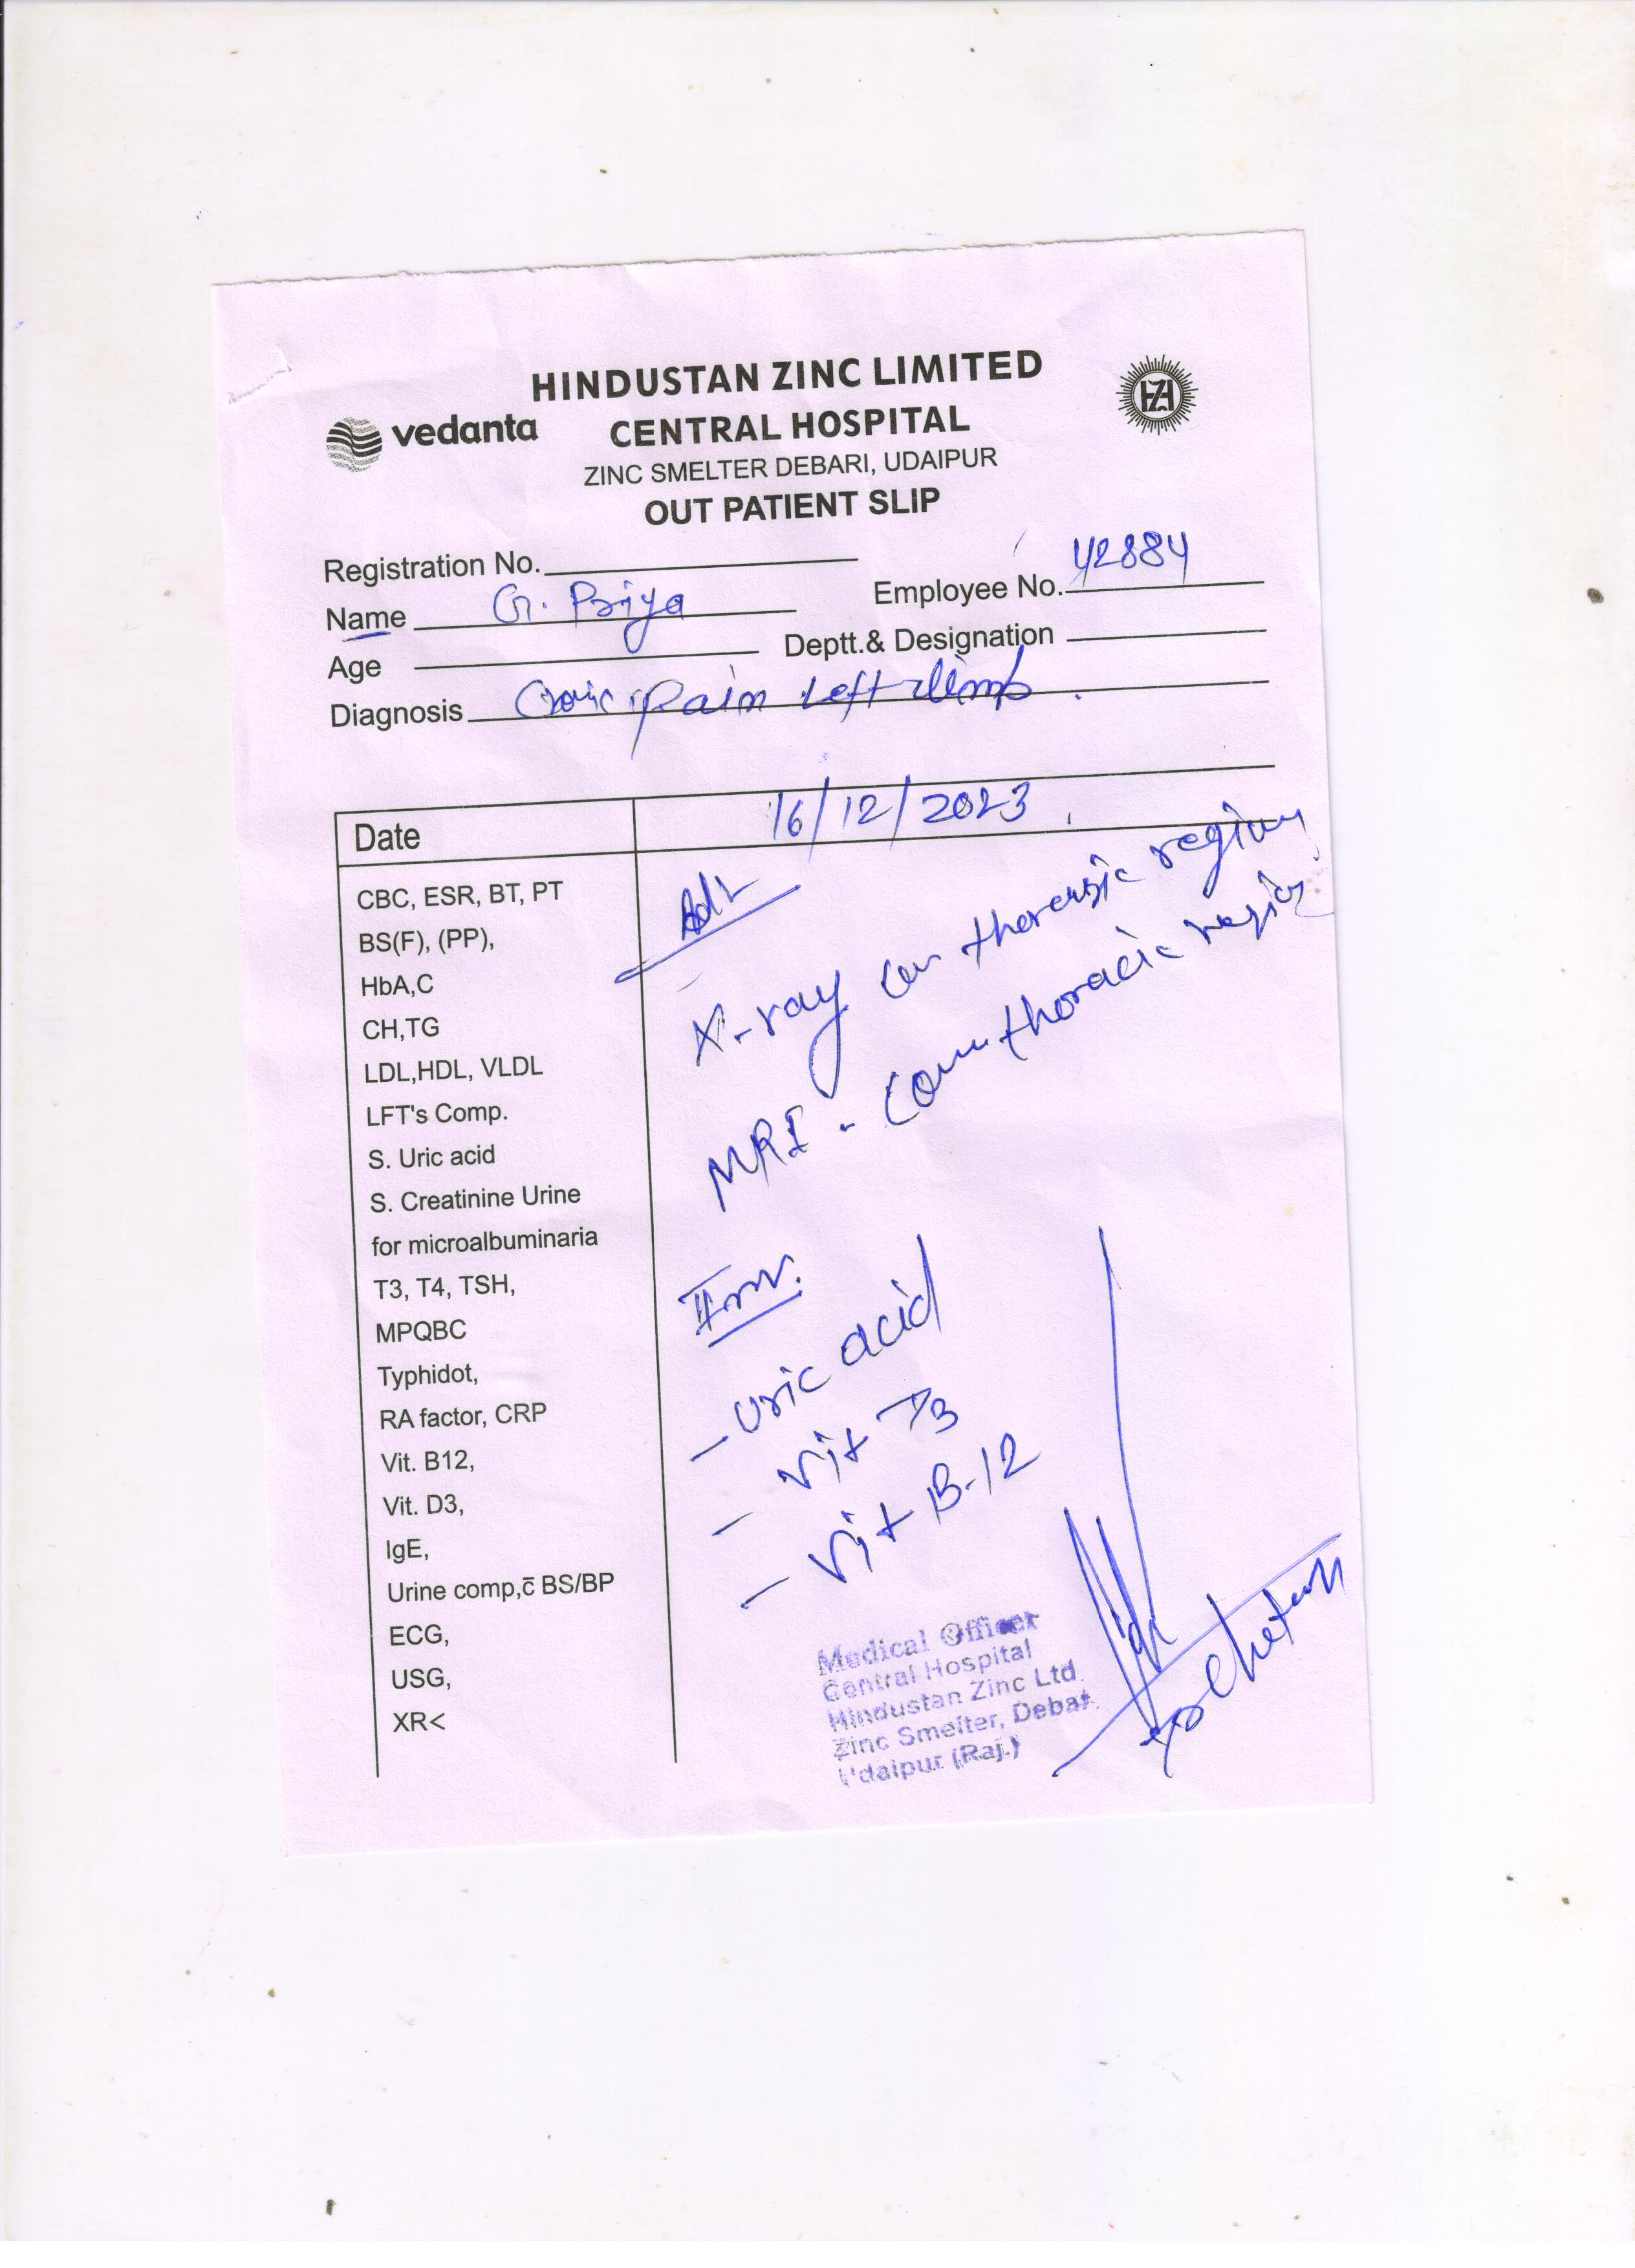 HINDUSTAN ZINC LIMITED
vedanta
CENTRAL HOSPITAL
ZINC SMELTER DEBARI, UDAIPUR
OUT PATIENT SLIP
Registration No.
Employee No. 42884
Name G. Priya
Deptt.& Designation
Age
Diagnosis Pain Left limb
Date 16/12/2023
CBC, ESR, BT, PT
BS(F), (PP),
HbA,C
CH,TG
LDL,HDL, VLDL
LFT's Comp.
S. Uric acid
S. Creatinine Urine
for microalbuminaria
T3, T4, TSH,
MPQBC
Typhidot,
RA factor, CRP
Vit. B12,
Vit. D3,
IgE,
Urine comp,c̄ BS/BP
ECG,
USG,
XR<
Adv
X-ray region
MRI - thoracic region
Inv.
- Uric acid
- Vit D3
- Vit B-12
Medical Officer
Central Hospital
Hindustan Zinc Ltd.
Zinc Smelter, Debari
Udaipur (Raj.)